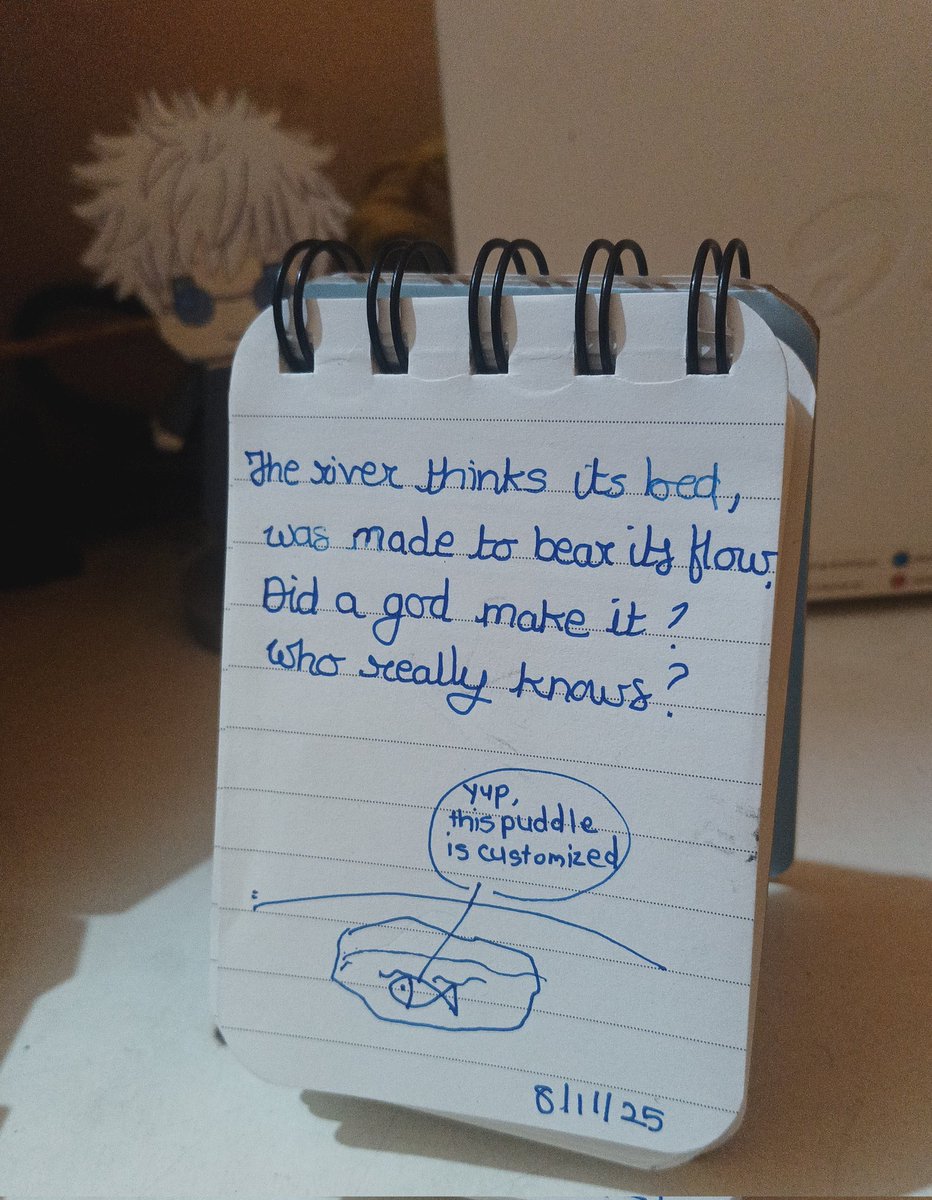 The river thinks its bed,
was made to bear its flow.
Did a god make it?
Who really knows?
yup,
this puddle
is customized
8/11/25